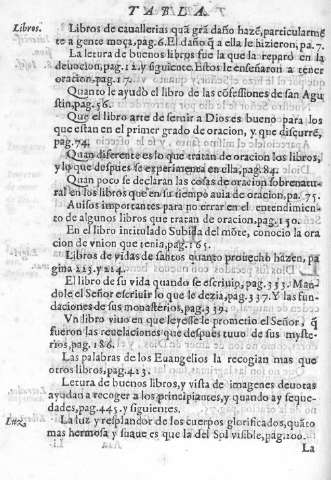 TABLA.
Libros. Libros de cauallerias quã grã daño hazẽ, particularmẽ
te a gente moça, pag. 6. El daño q̃ a ella le hizieron, pa. 7.
La letura de buenos libros fue la que la reparò en la
deuocion, pag. 12. y siguiente. Estos le enseñaron a tener
oracion, pag. 17.
Quanto le ayudò el libro de las cõfessiones de san Agu
stin, pag. 56.
Que el libro arte de seruir a Dios es bueno para los
que estan en el primer grado de oracion, y que discurrẽ,
pag. 74.
Quan diferente es lo que tratan de oracion los libros,
y lo que despues se experimenta en ella, pag. 84.
Quan poco se declaran las cosas de oracion sobrenatu
ral en los libros que en su tiempo auia de oracion, pa. 75.
Auisos importantes para no errar en el entendimien
to de algunos libros que tratan de oracion, pag. 150.
En el libro intitulado Subida del mõte, conocio la ora
cion de vnion que tenia, pag. 165.
Libros de vidas de santos quanto prouecho hazen, pa
gina 223. y 224.
El libro de su vida quando se escriuio, pag. 333. Man-
dole el Señor escriuir lo que le dezia, pag. 337. Y las fun-
daciones de sus monasterios, pag. 339.
Vn libro viuo en que leyesse le prometio el Señor, q̃
fueron las reuelaciones que despues tuuo de sus myste-
rios, pag. 186.
Las palabras de los Euangelios la recogian mas que
otros libros, pag. 423.
Letura de buenos libros, y vista de imagenes deuotas
ayudan a recoger a los principiantes, y quando ay seque-
dades, pag. 445. y siguientes.
Luz. La luz y resplandor de los cuerpos glorificados, quãto
mas hermosa y suaue es que la del Sol visible, pag. 200.
La